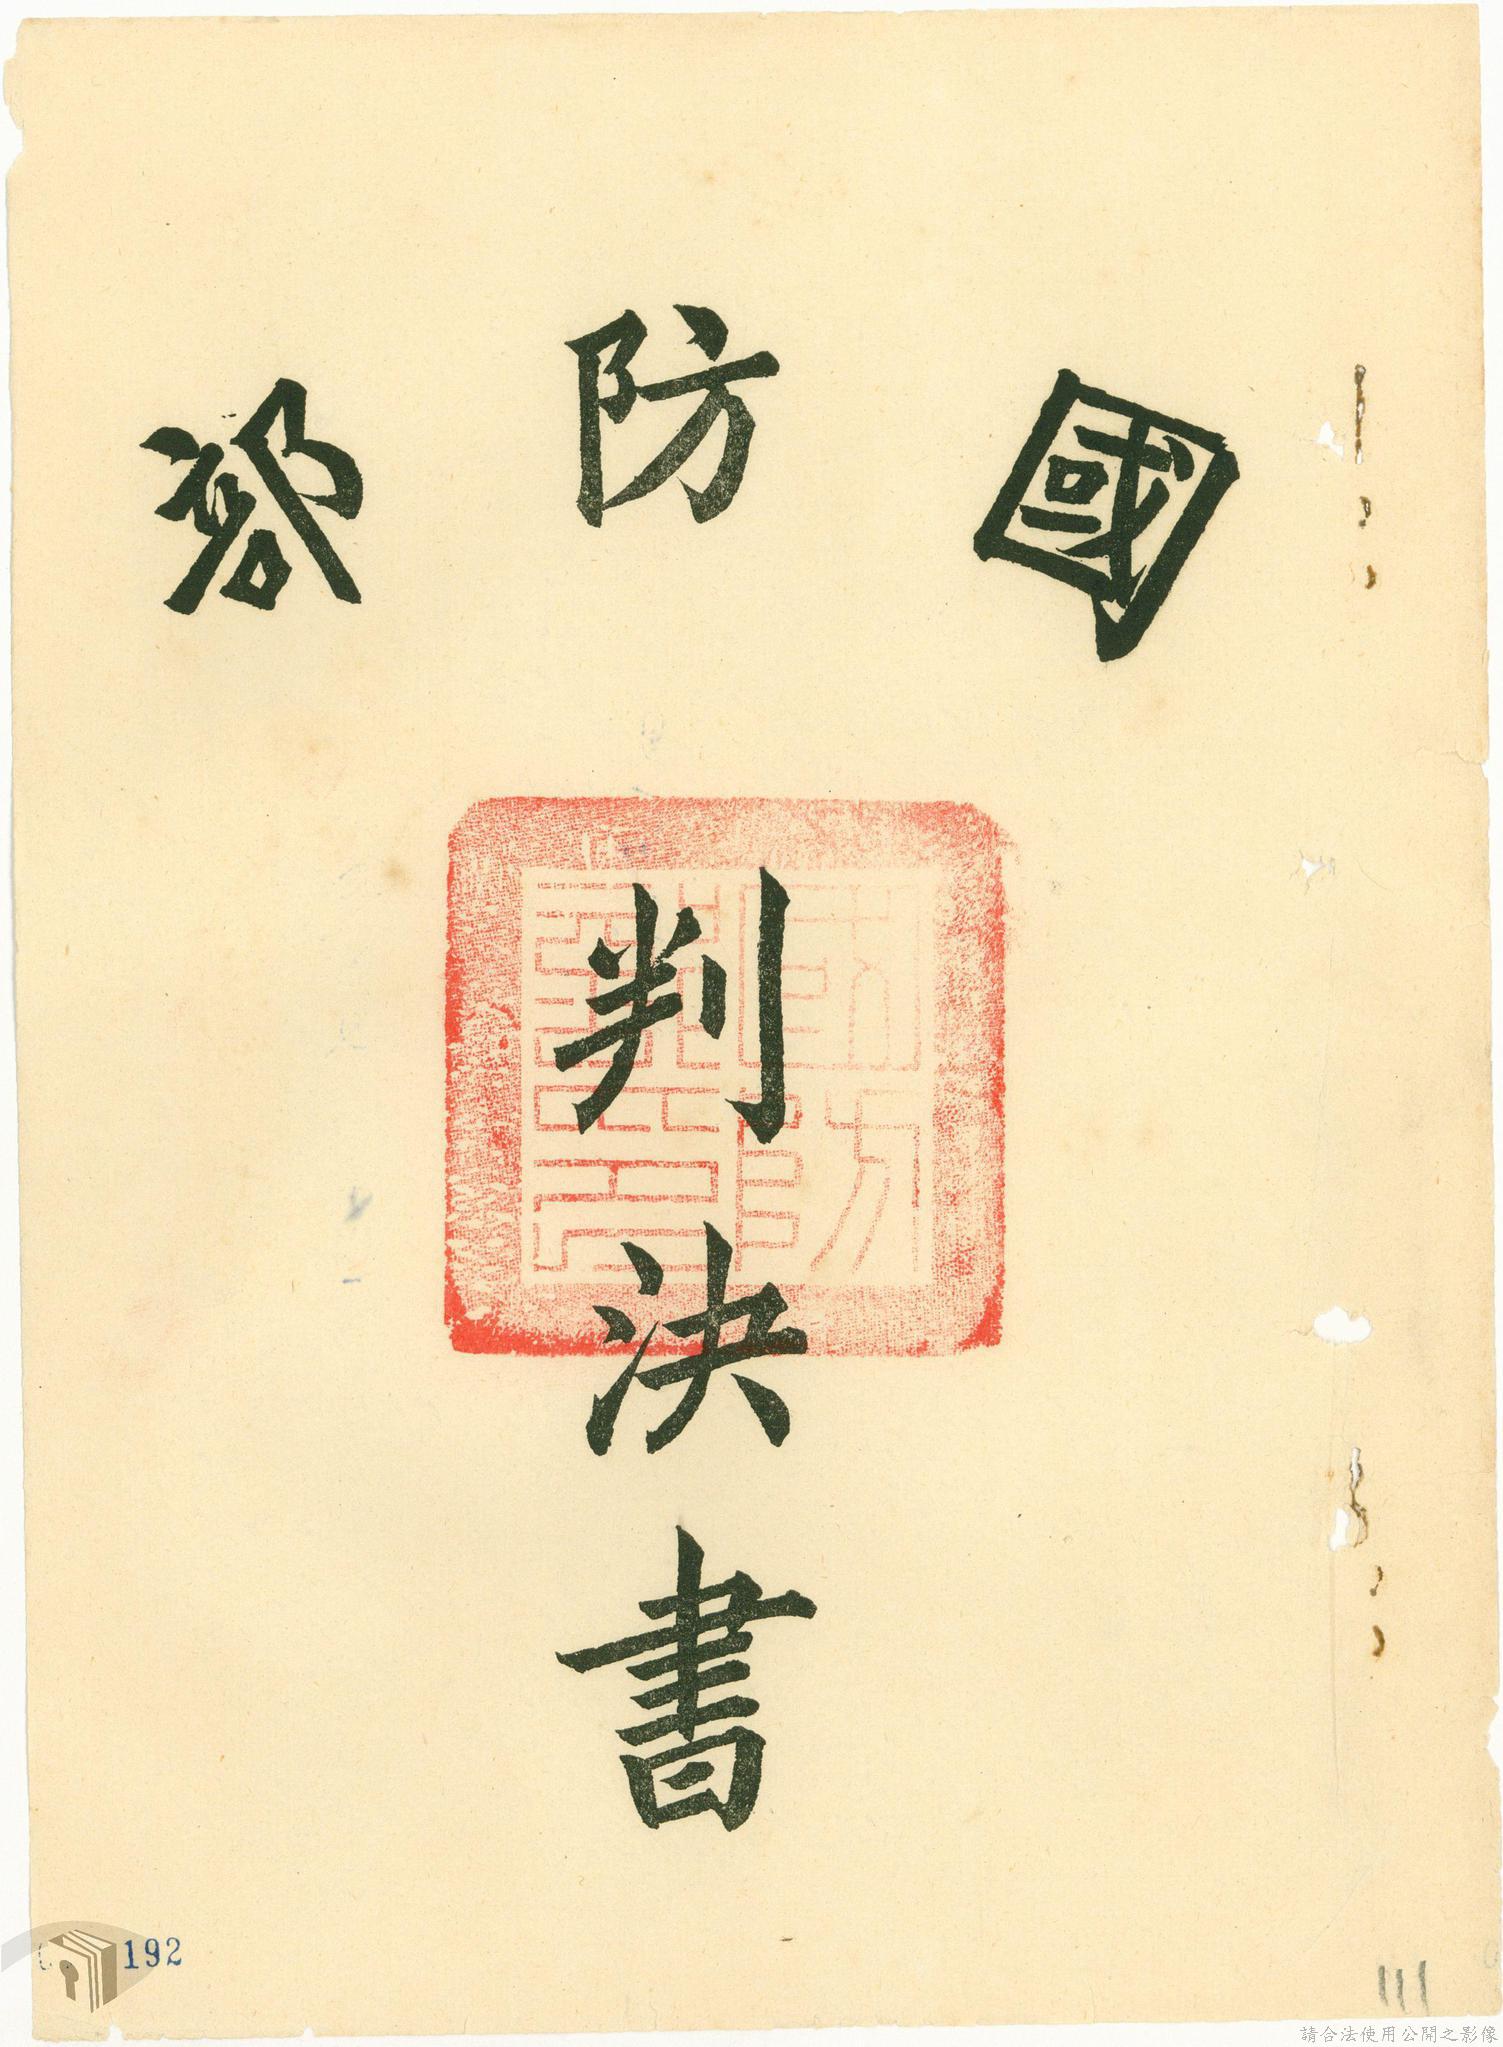 國防部
判決書
192
111
請合法使用公開之影像